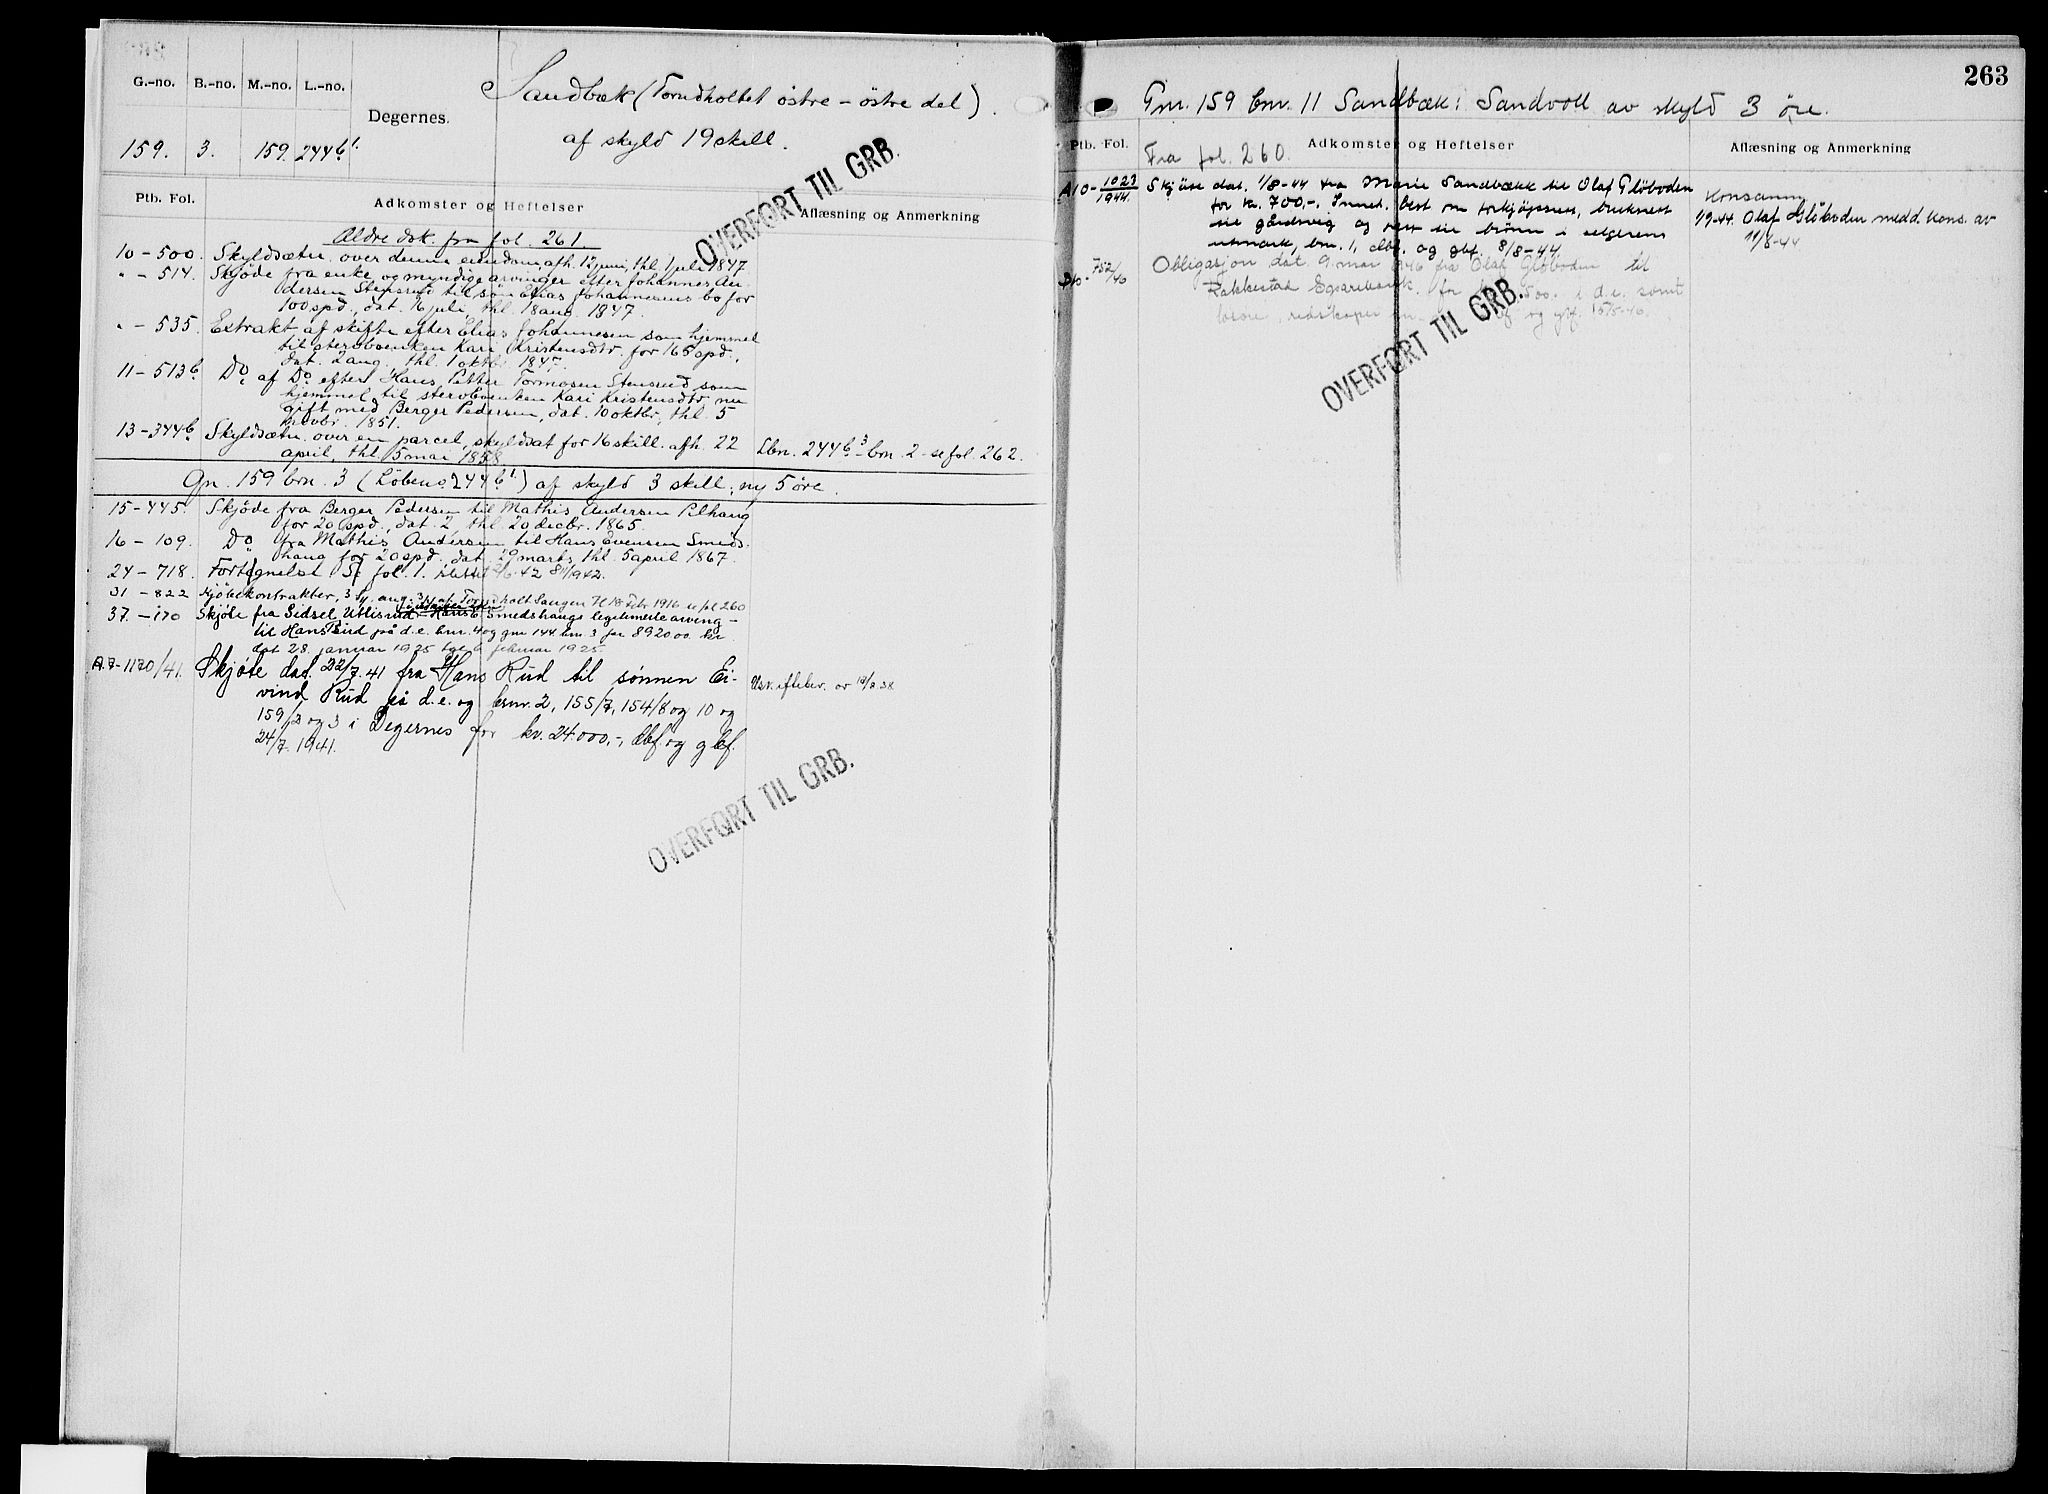 G.-no. B.-no. M.-no. L.-no.
Degernes.
159. 3. 159. 244b¹.
Sandbæk (Torudholtet östre - östre del).
af skyld 19 skill.
OVERFØRT TIL GRB.
Ptb. Fol. Adkomster og Heftelser Aflæsning og Anmerkning
Ældre dok. fra fol. 261
10 - 500. Skyldsætn. over denne eiendom, afh. 12 juni, thl. 1 juli 1847
" - 514. Skjøde fra enke og myndige arvinger efter Johannes An-
dersen Stensrud til søn Elias Johannesens bo for
100 spd., dat. 16 juli, thl. 18 aug. 1847.
" - 535. Extrakt af skifte efter Elias Johannesen som hjemmel
til stervboenken Kari Kristensdtr. for 165 spd.,
dat. 2 aug. thl. 1 oktbr 1847.
11 - 513b. Do. af Do. efter Hans Petter Tormosen Stensrud som
hjemmel til stervboenken Kari Kristensdtr nu
gift med Berger Pedersen, dat. 10 oktbr., thl. 5
novbr. 1851.
13 - 344b. Skyldsætn. over en parcel, skyldsat for 16 skill. afh. 22
april, thl. 5 mai 1858
Lbn. 244b³ - bn. 2 - se fol. 262.
Gn. 159 bn. 3 (Löbeno 244b¹) af skyld 3 skill; ny 5 øre.
15 - 445. Skjøde fra Berger Pedersen til Mathis Andersen Pilhaug
for 20 spd., dat. 2, thl. 20 decbr. 1865.
16 - 109. Do fra Mathis Andersen til Hans Evensen Smeds-
haug for 20 spd. dat. 29 marts, thl. 5 april 1867.
24 - 718. Fortegnelse Se fol. 1. slettet 1942.
31 - 822 Kjöbekontrakter, 3 Torudholt Saugen 18 Febr 1916 se fol 260
37. - 170 Skjöte fra Sidsel Utlisrud Hans Smedshaugs legitimerte arving -
til Hans Rud på d.e. bnr. 4 og gnr 144 bnr. 3 for 8920 00 kr
dat 28. januar 1925 tgl. 6 februar 1925.
A.7-1120/41. Skjöte dat. 22/7.41 fra Hans Rud til sønnen Ei-
vind Rud på d.e. og bnr. 2, 155/7, 154/8 og 10 og
159/2 og 3 i Degernes for kr. 24.000,-, dbf. og gbf.
24/7. 1941.
OVERFØRT TIL GRB.
263
Gnr. 159 bnr. 11 Sandbæk: Sandvoll av skyld 3 øre.
Ptb. Fol. Adkomster og Heftelser Aflæsning og Anmerkning
Fra fol. 260.
A10 - 1023/1944. Skjøte dat. 1/8-44 fra Marie Sandbækk til Olaf Gløboden
for kr. 700,-. Innet. best om forkjøpsrett, bruksrett
til gårdsvig og rett til brønn i selgerens
utmark, bnr. 1, dbf. og gbf. 8/8-44.
Konsesjon
1/9-44. Olaf Glöboden medd. kons. av
11/8-44
752/46 Obligasjon dat. 9 mai 1946 fra Olaf Gløboden til
Rakkestad Sparebank for i d.e. samt
redskaper og gbf. 15/5-46.
OVERFØRT TIL GRB.